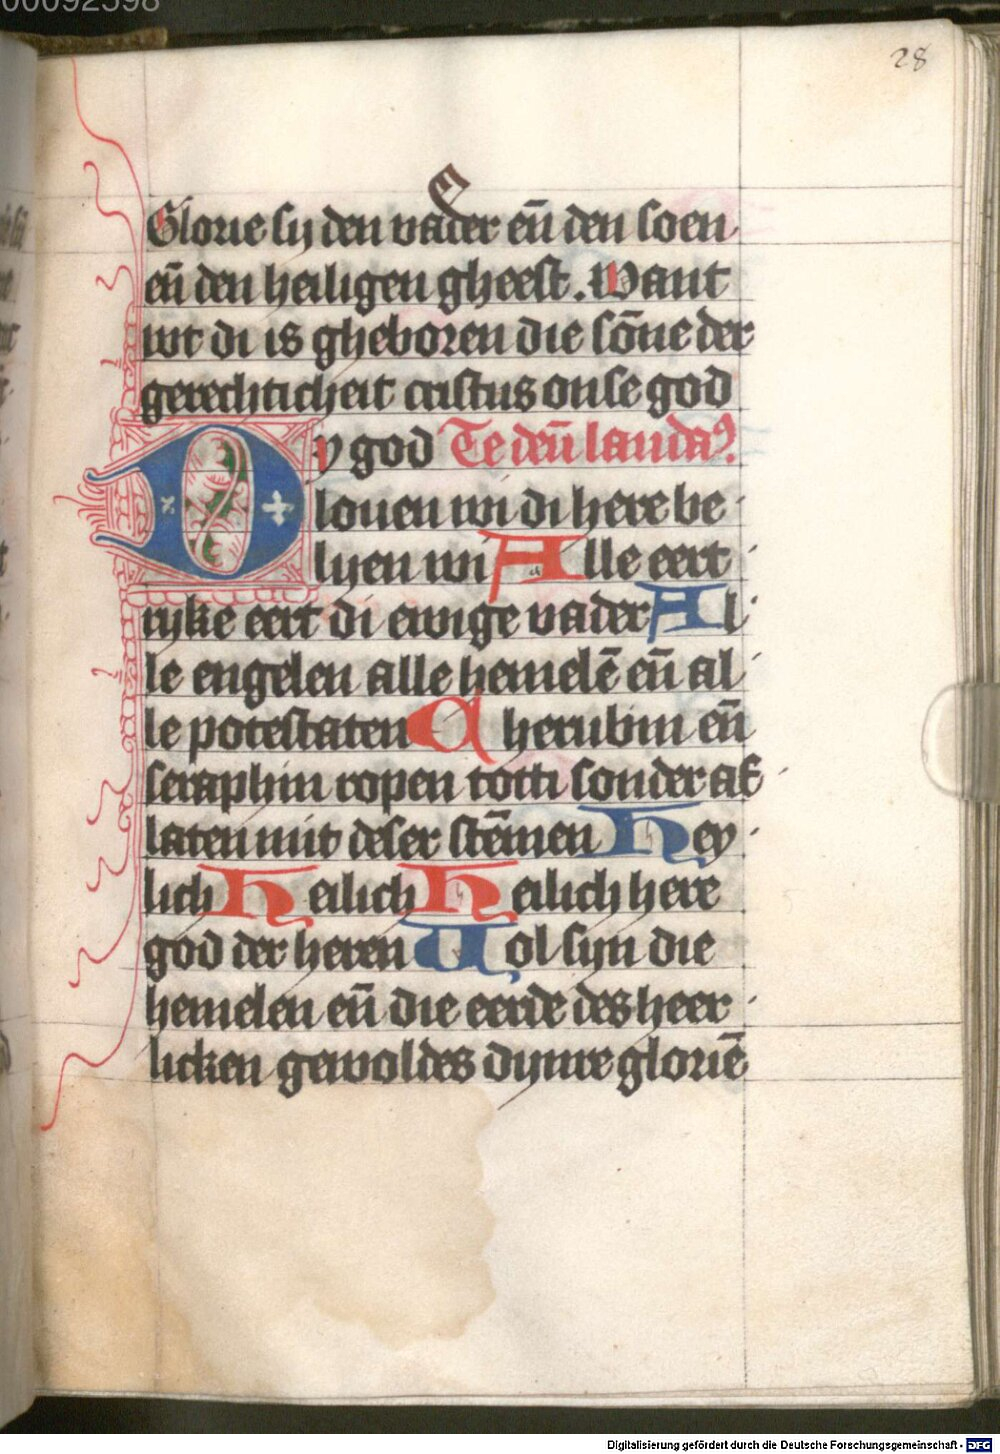 00092598
28
Glorie sy den vader eñ den soen
eñ den heiligen gheest. Want
wt di is gheboren die sōne der
gerechticheit cristus onse god
Dy god Te deū lauda⁹.
louen wi di here be
lyen wi Alle eert
ryke eert di ewige vader Al
le engelen alle hemelē eñ al
le potestaten Cherubin eñ
seraphin ropen totti sonder af
laten mit deser stēmen Hey
lich Heilich Heilich here
god der heren Uol syn die
hemelen eñ die eerde des heer
licken gewoldes dynre gloriē
Digitalisierung gefördert durch die Deutsche Forschungsgemeinschaft - DFG